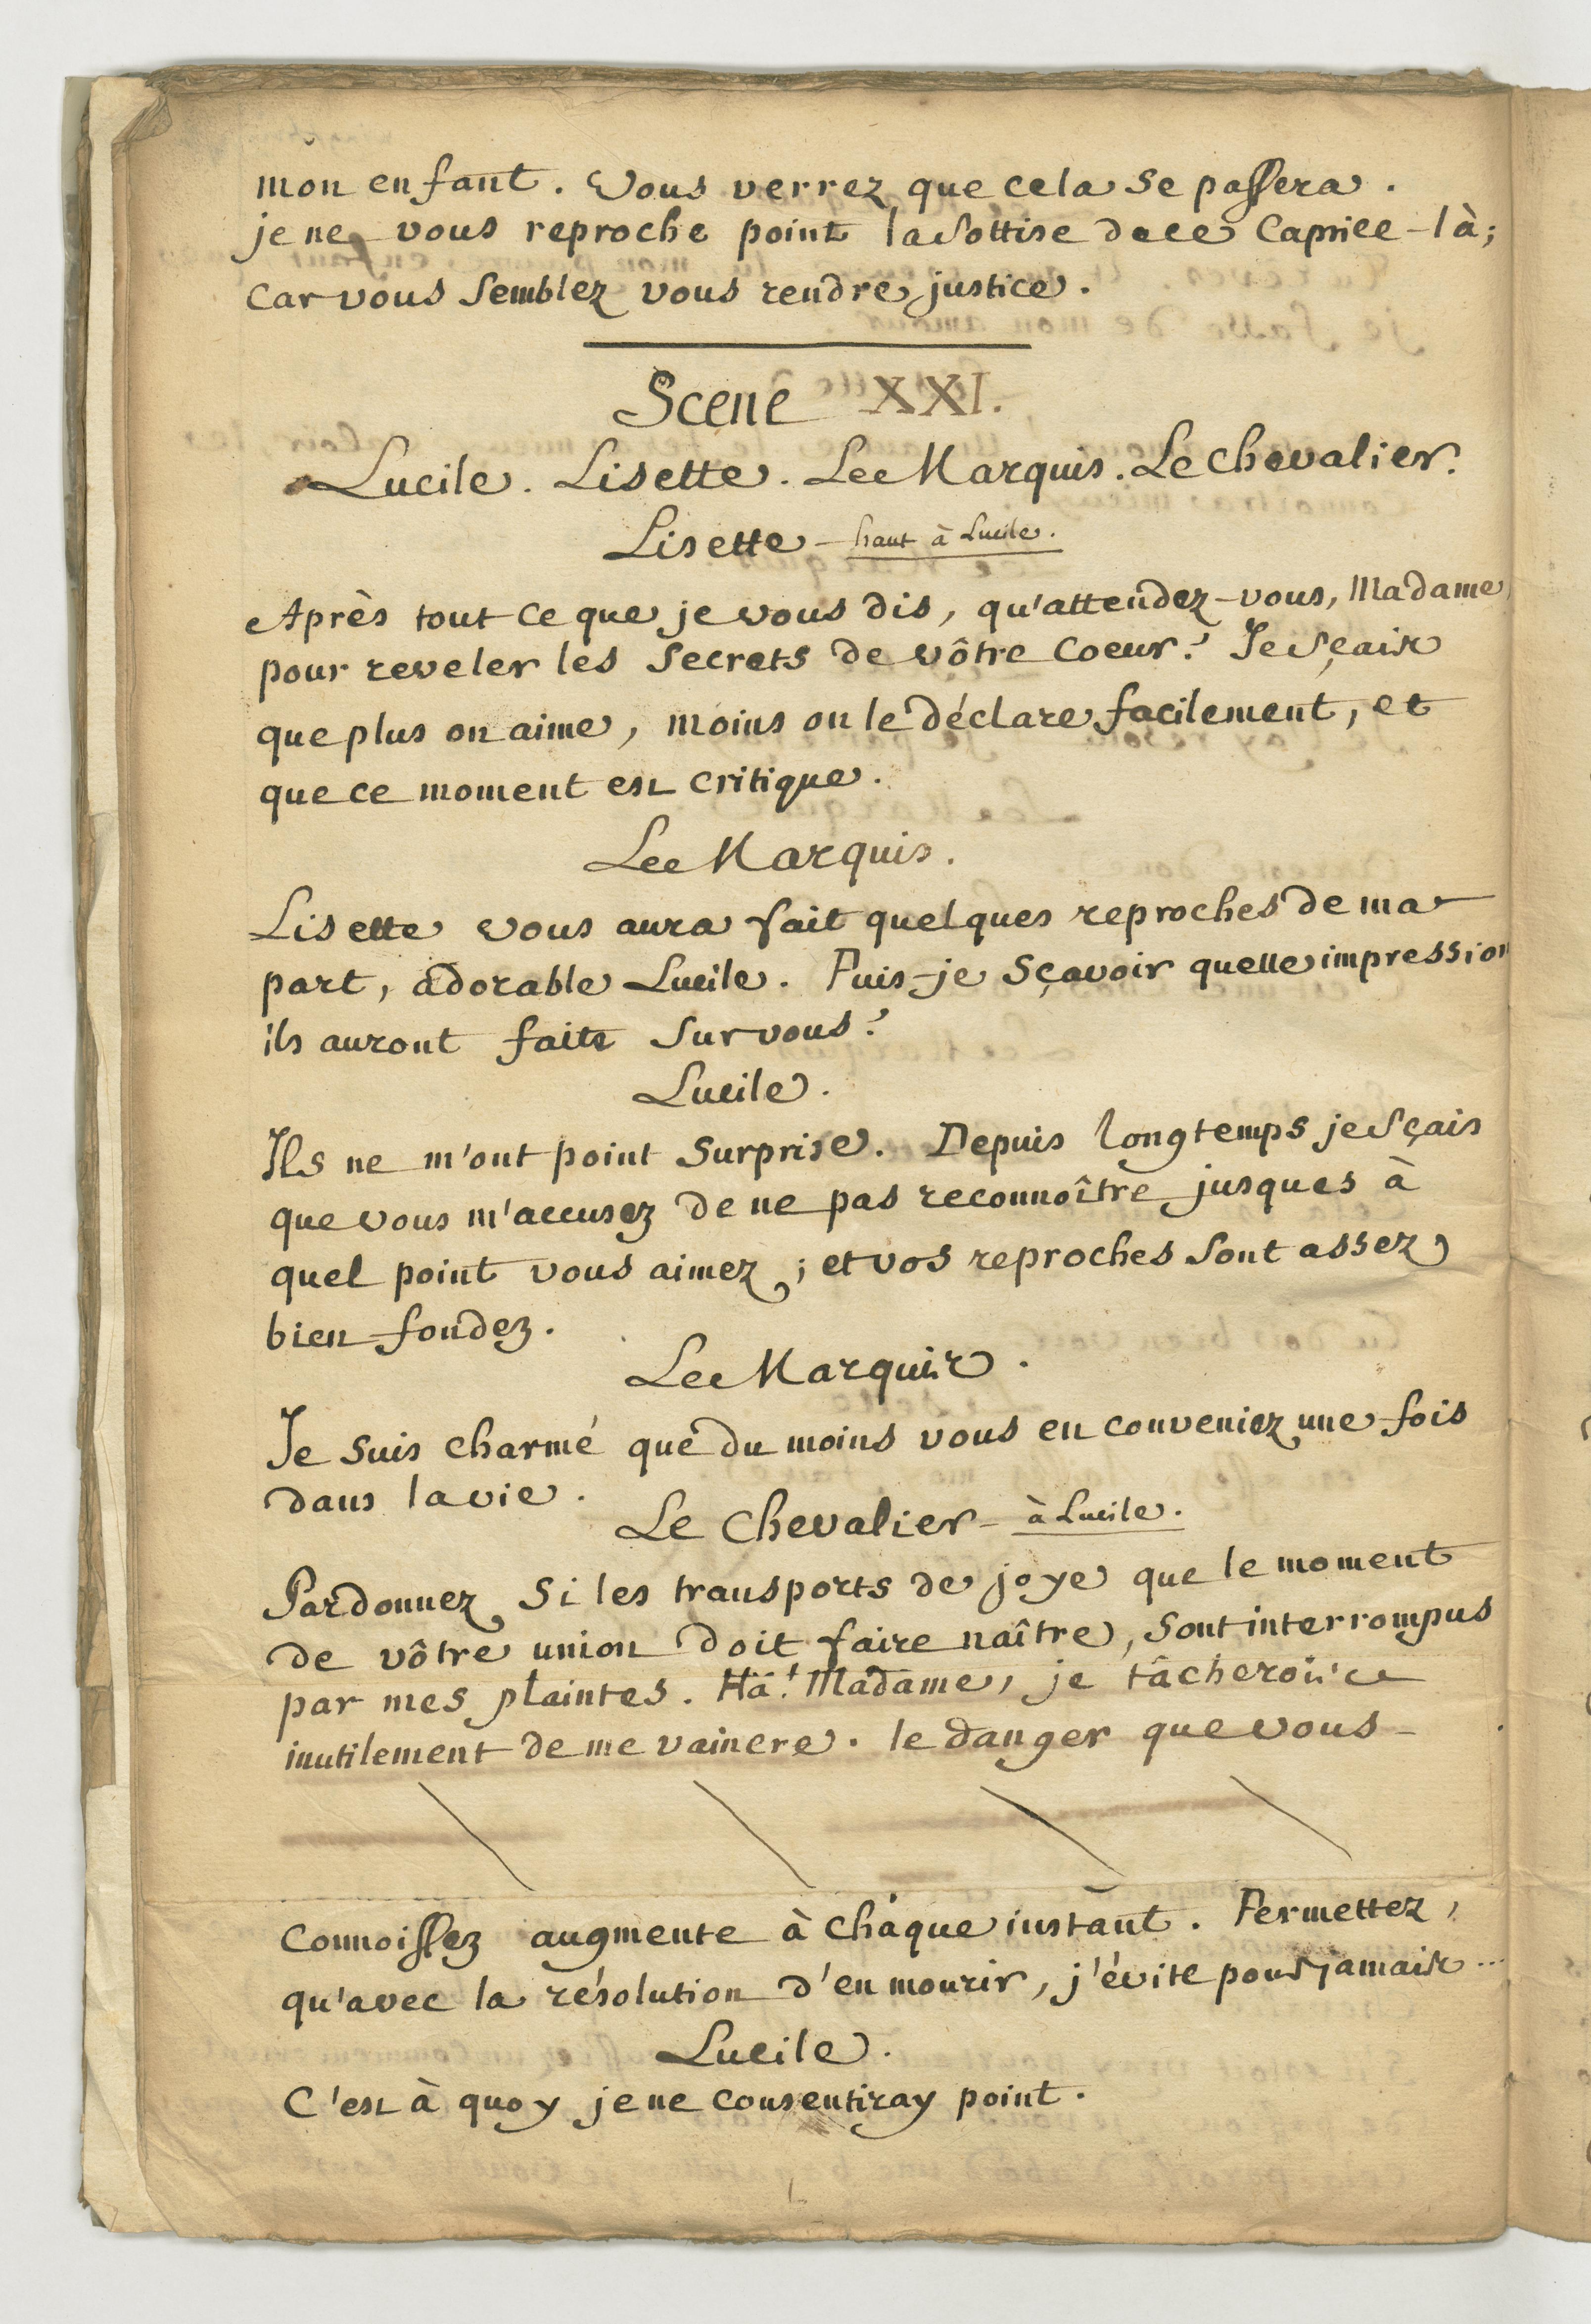 mon enfant. Vous verrez que cela se passera.
je ne vous reproche point la sottise de ce Caprice-là;
Car vous semblez vous rendre justice.
Scene XXI.
Lucile. Lisette. Le Marquis. Le Chevalier.
Lisette - haut à Lucile.
Après tout ce que je vous dis, qu'attendez-vous, Madame,
pour reveler les secrets de vôtre coeur? Je sçais
que plus on aime, moins on le déclare facilement, et
que ce moment est critique.
Le Marquis.
Lisette vous aura fait quelques reproches de ma
part, adorable Lucile. Puis-je sçavoir quelle impression
ils auront faite sur vous?
Lucile.
Ils ne m'ont point surprise. Depuis longtemps je sçais
que vous m'accusez de ne pas reconnoître jusques à
quel point vous aimez; et vos reproches sont assez
bien fondez.
Le Marquis.
Je suis charmé que du moins vous en conveniez une fois
dans la vie.
Le Chevalier - à Lucile.
Pardonnez si les transports de joye que le moment
de vôtre union doit faire naître, sont interrompus
par mes plaintes. Ha! Madame, je tâcherois
inutilement de me vaincre. le danger que vous
connoissez augmente à chaque instant. Permettez,
qu'avec la résolution d'en mourir, j'évite pour jamais...
Lucile.
C'est à quoy je ne consentiray point.